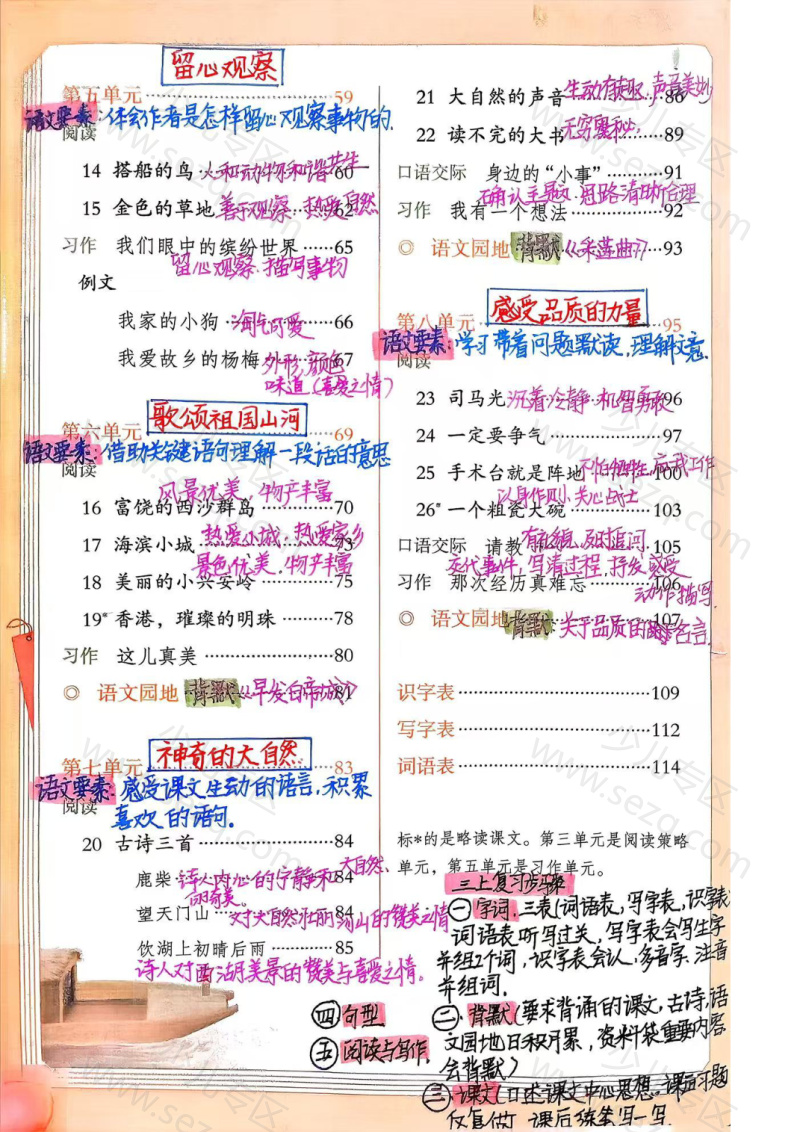 留心观察
第五单元 59
语文要素:体会作者是怎样留心观察事物的.
阅读
14 搭船的鸟 人和动物和谐共生 60
15 金色的草地 善于观察 热爱自然 62
习作 我们眼中的缤纷世界 65
留心观察.描写事物
例文
我家的小狗 淘气可爱 66
我爱故乡的杨梅 外形,颜色 67
味道(喜爱之情)
歌颂祖国山河
第六单元 69
语文要素:借助关键语句理解一段话的意思
阅读
风景优美、物产丰富
16 富饶的西沙群岛 70
17 海滨小城 热爱小城、热爱家乡 73
景色优美、物产丰富
18 美丽的小兴安岭 75
19* 香港,璀璨的明珠 78
习作 这儿真美 80
◎ 语文园地 背默《早发白帝城》 81
神奇的大自然
第七单元 83
语文要素:感受课文生动的语言,积累
阅读
喜欢的语句.
20 古诗三首 84
鹿柴 诗人内心的宁静和大自然 84
的奇美。
望天门山 对大自然壮丽河山的赞美之情
饮湖上初晴后雨 85
诗人对西湖美景的赞美与喜爱之情。
21 大自然的声音 生动有趣、声音美妙 86
22 读不完的大书 无穷奥秘 89
口语交际 身边的“小事” 91
确认主题 思路清晰合理
习作 我有一个想法 92
◎ 语文园地 背默《采莲曲》 93
感受品质的力量
第八单元 95
语文要素:学习带着问题默读,理解文意.
阅读
23 司马光 沉着冷静 机智勇敢 96
24 一定要争气 97
25 手术台就是阵地 不怕牺牲,忘我工作 100
以身作则、关心战士
26* 一个粗瓷大碗 103
口语交际 请教 有礼貌、及时追问 105
交代事件,写清过程,抒发感受
习作 那次经历真难忘 106
动作描写.
◎ 语文园地 背默:关于品质的名言. 107
识字表 109
写字表 112
词语表 114
标*的是略读课文。第三单元是阅读策略
单元,第五单元是习作单元。
三上复习步骤
㊀字词.三表(词语表,写字表,识字表
词语表听写过关,写字表会写生字
并组2个词,识字表会认.多音字.注音
并组词.
㊁.背默(要求背诵的课文,古诗,语
文园地日积月累,资料袋重要内容
会背默)
㊂课文(口述课文中心思想.课后习题
反复做 课后练笔写一写.
㊃句型
㊄阅读与写作.
少儿专区
www.sezq.com